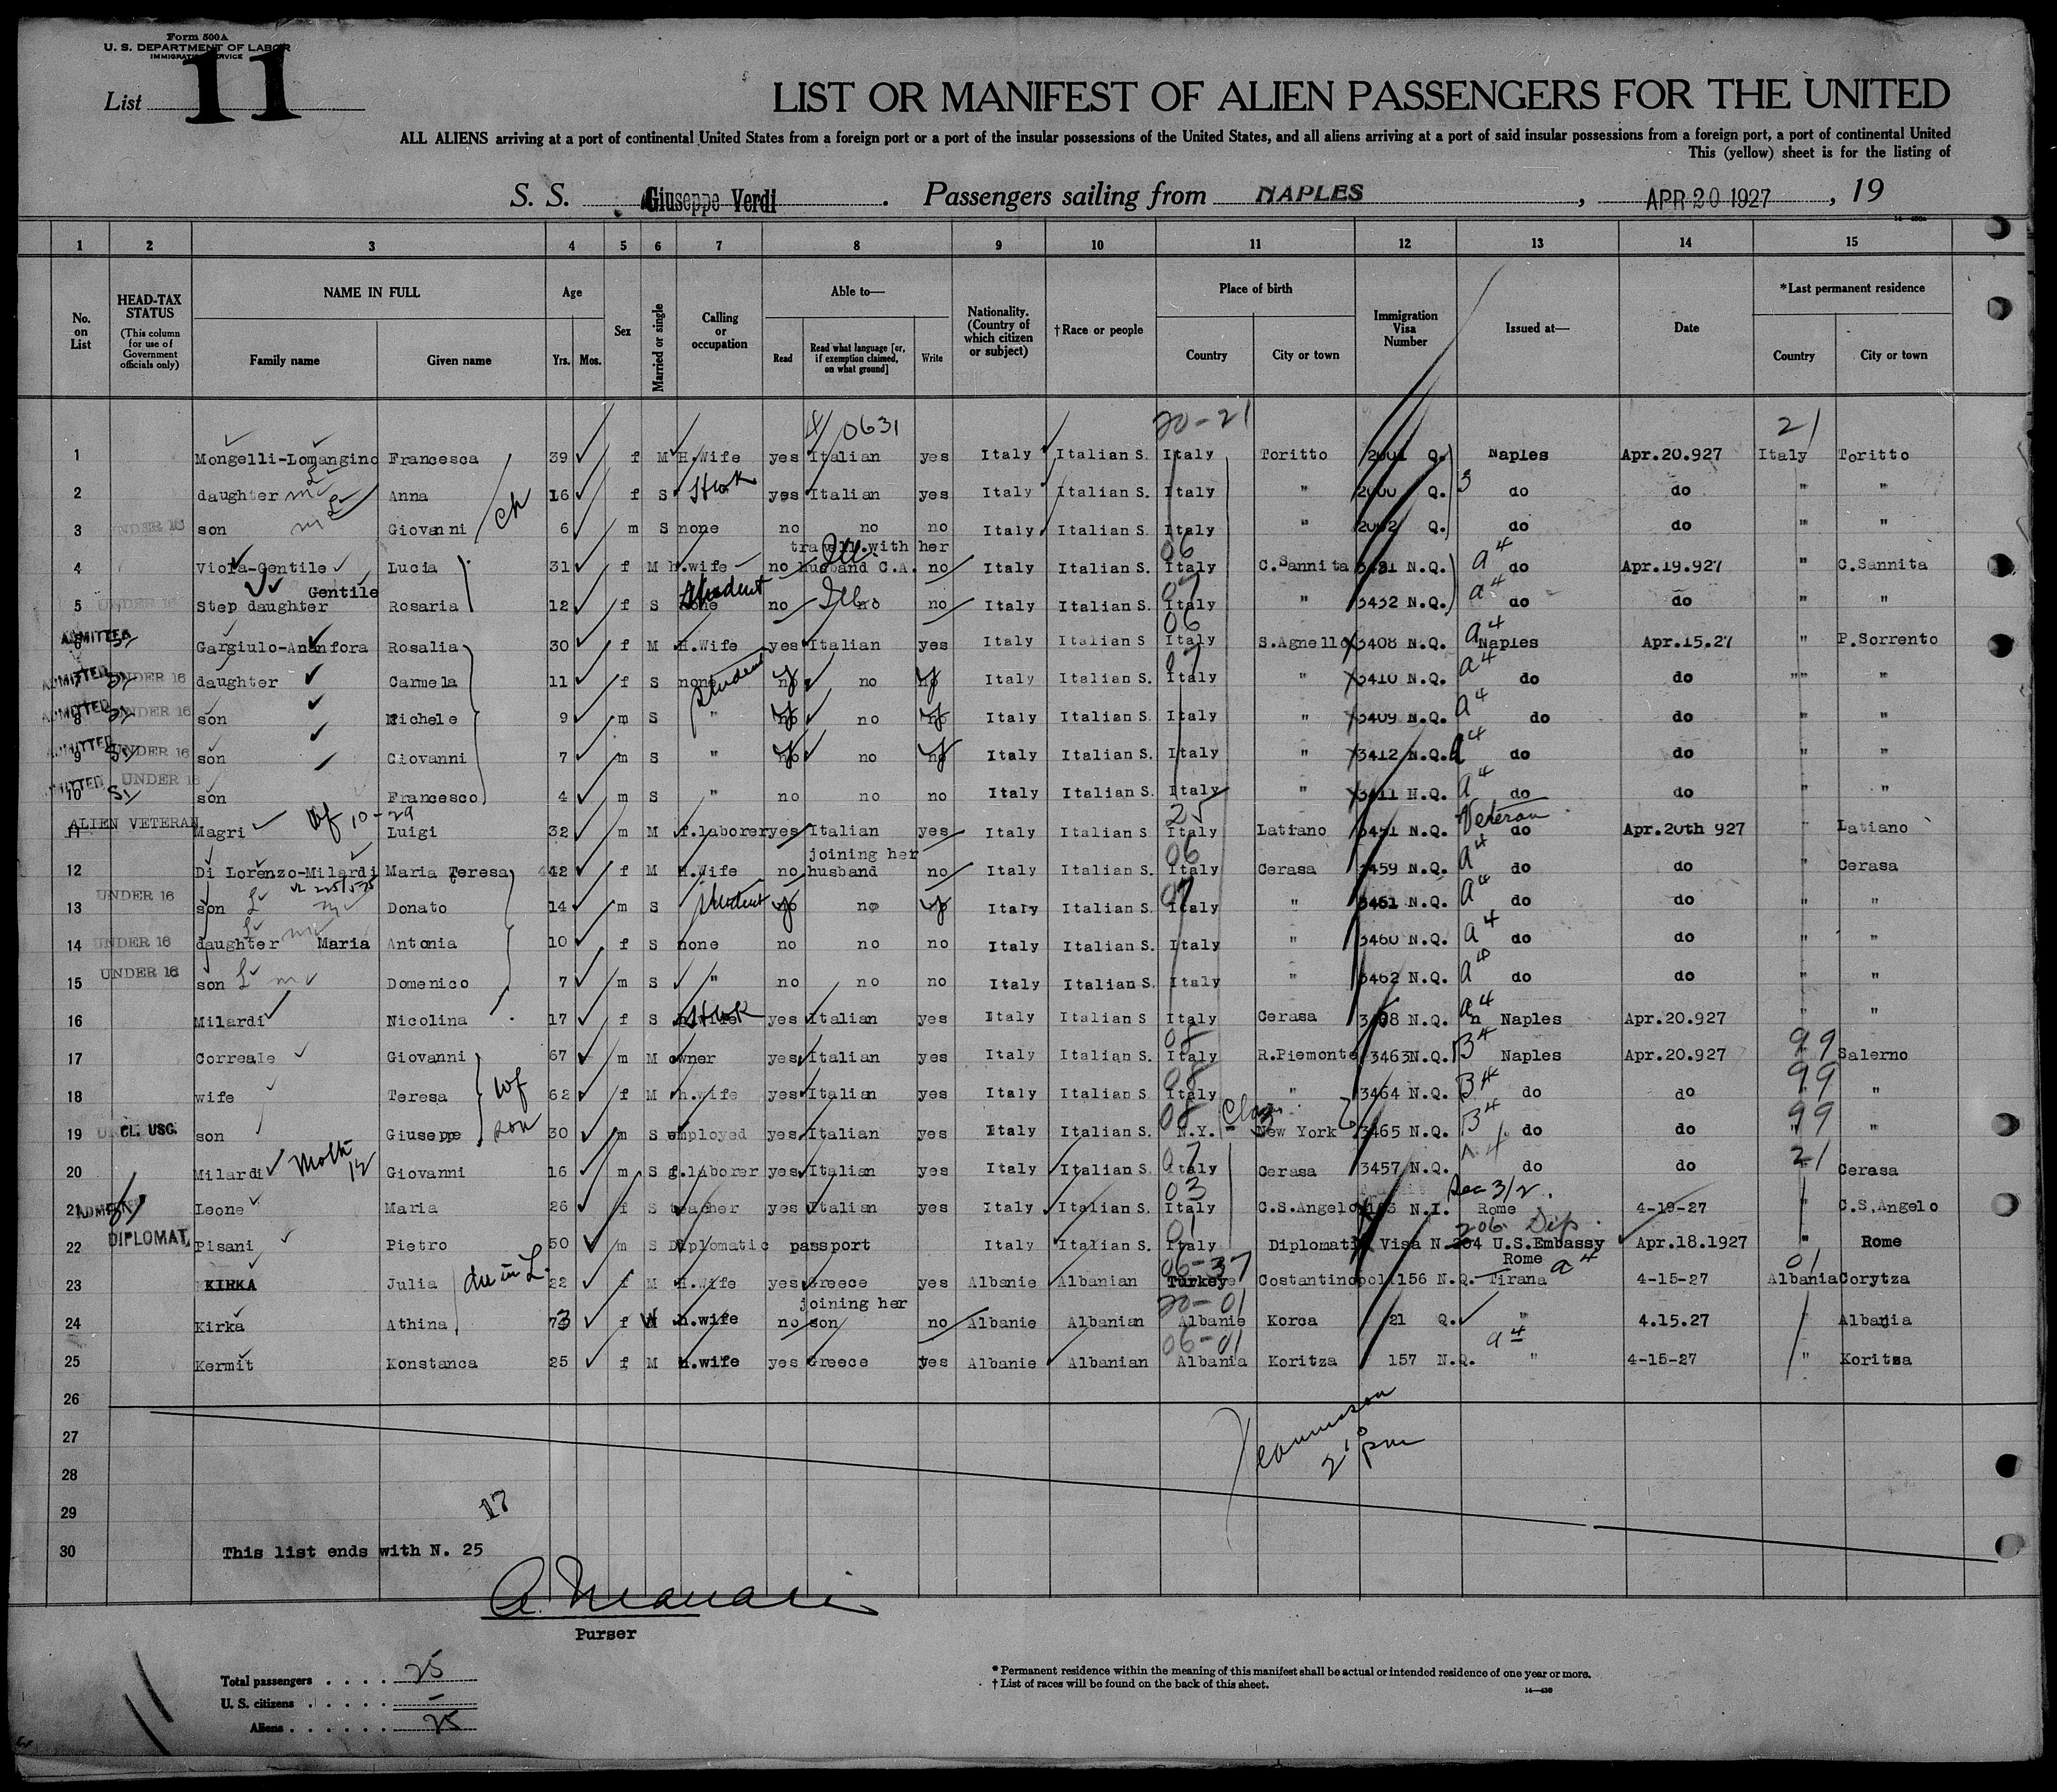 Form 500A
U. S. DEPARTMENT OF LABOR
IMMIGRATION SERVICE
List 11
LIST OR MANIFEST OF ALIEN PASSENGERS FOR THE UNITED
ALL ALIENS arriving at a port of continental United States from a foreign port or a port of the insular possessions of the United States, and all aliens arriving at a port of said insular possessions from a foreign port, a port of continental United
This (yellow) sheet is for the listing of
S. S. Giuseppe Verdi . Passengers sailing from NAPLES , APR 20 1927 , 19
1 2 3 4 5 6 7 8 9 10 11 12 13 14 15
No. on List
HEAD-TAX STATUS (This column for use of Government officials only)
NAME IN FULL Family name Given name
Age Yrs. Mos.
Sex
Married or single
Calling or occupation
Able to— Read Read what language [or, if exemption claimed, on what ground] Write
Nationality. (Country of which citizen or subject)
†Race or people
Place of birth Country City or town
Immigration Visa Number
Issued at—
Date
*Last permanent residence Country City or town
0631 20-21 21
1 Mongelli-Lomangino Francesca 39 f M H.Wife yes Italian yes Italy Italian S. Italy Toritto 2001 Q. Naples Apr.20.927 Italy Toritto
2 daughter Anna 16 f S yes Italian yes Italy Italian S. Italy " 2000 Q. 3 do do " "
3 UNDER 16 son Giovanni ch 6 m S none no no no Italy Italian S. Italy " 2002 Q. do do " "
travell.with her 06
4 Viola-Gentile Lucia 31 f M h.wife no husband C.A. no Italy Italian S. Italy C.Sannita 3431 N.Q. a4 do Apr.19.927 " C.Sannita
Gentile Student 07
5 UNDER 16 Step daughter Rosaria 12 f S none no no no Italy Italian S. Italy " 3432 N.Q. a4 do do " "
ADMITTED 06
6 Gargiulo-Ananfora Rosalia 30 f M H.Wife yes Italian yes Italy Italian S Italy S.Agnello 3408 N.Q. a4 Naples Apr.15.27 " P.Sorrento
ADMITTED 07
7 UNDER 16 daughter Carmela 11 f S none student no no no Italy Italian S. Italy " 3410 N.Q. a4 do do "" "
8 ADMITTED UNDER 16 son Michele 9 m S " no no no Italy Italian S. Italy " 3409 N.Q. a4 do do " "
9 ADMITTED UNDER 16 son Giovanni 7 m S " no no no Italy Italian S. Italy " 3412 N.Q. a4 do do " "
10 ADMITTED UNDER 16 son Francesco 4 m S " no no no Italy Italian S. Italy " 3411 N.Q. a4 do do " "
wf 10-29 25 Veteran
11 ALIEN VETERAN Magri Luigi 32 m M f.laborer yes Italian yes Italy Italian S. Italy Latiano 3451 N.Q. do Apr.20th 927 " Latiano
joining her 06
12 Di Lorenzo-Milardi Maria Teresa 42 f M H.Wife no husband no Italy Italian S. Italy Cerasa 3459 N.Q. a4 do do " Cerasa
13 UNDER 16 son Donato 14 m S student no no no Italy Italian S. Italy 07 " 3461 N.Q. a4 do do " "
14 UNDER 16 daughter Maria Antonia 10 f S none no no no Italy Italian S. Italy " 3460 N.Q. a4 do do " "
15 UNDER 16 son Domenico 7 m S " no no no Italy Italian S. Italy " 3462 N.Q. a4 do do " "
16 Milardi Nicolina 17 f S h.wife yes Italian yes Italy Italian S Italy Cerasa 3458 N.Q. a4 Naples Apr.20.927 " "
08 99
17 Correale Giovanni 67 m M owner yes Italian yes Italy Italian S. Italy R.Piemonte 3463N.Q. B4 Naples Apr.20.927 Salerno
08 99
18 wife Teresa wf 62 f M h.wife yes Italian yes Italy Italian S. Italy " 3464 N.Q. B4 do do "
08 99
19 CL. USC. son Giuseppe son 30 m S employed yes Italian yes Italy Italian S. N.Y. New York 3465 N.Q. B4 do do " "
07 21
20 Milardi Moth 12 Giovanni 16 m S f.laborer yes Italian yes Italy Italian S. Italy Cerasa 3457 N.Q. do do Cerasa
03 Sec 3/2.
21 Leone Maria 26 f S teacher yes Italian yes Italy Italian S. Italy C.S.Angelo N.I. Rome 4-19-27 " C.S.Angelo
01 206 Dip.
22 DIPLOMAT. Pisani Pietro 50 m S Diplomatic passport Italy Italian S. Italy Diplomatic Visa N.204 U.S.Embassy Rome Apr.18.1927 " Rome
06-37 01
23 KIRKA Julia 22 f M H.Wife yes Greece yes Albanie Albanian Turkey Costantinopol 156 N.Q. Tirana a4 4-15-27 Albania Corytza
joining her 20-01
24 Kirka Athina 73 f W h.wife no son no Albanie Albanian Albanie Korca 21 Q. " 4.15.27 " Albania
06-01 a4
25 Kermit Konstanca 25 f M h.wife yes Greece yes Albanie Albanian Albania Koritza 157 N.Q. " 4-15-27 " Koritsa
26
27
28
29
17
30 This list ends with N. 25
Purser
Total passengers . . . . 25
U. S. citizens . . . . . –
Aliens . . . . . . 25
* Permanent residence within the meaning of this manifest shall be actual or intended residence of one year or more.
† List of races will be found on the back of this sheet.
14—430